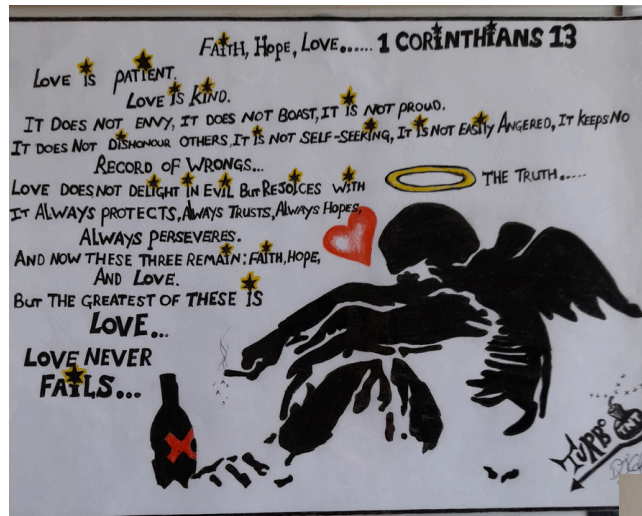 FAITH, HOPE, LOVE...... 1 CORINTHIANS 13
LOVE IS PATIENT.
LOVE IS KIND.
IT DOES NOT ENVY, IT DOES NOT BOAST, IT IS NOT PROUD.
IT DOES NOT DISHONOUR OTHERS, IT IS NOT SELF-SEEKING, IT IS NOT EASILY ANGERED, IT KEEPS NO
RECORD OF WRONGS...
LOVE DOES NOT DELIGHT IN EVIL BUT REJOICES WITH THE TRUTH.....
IT ALWAYS PROTECTS, ALWAYS TRUSTS, ALWAYS HOPES,
ALWAYS PERSEVERES.
AND NOW THESE THREE REMAIN: FAITH, HOPE,
AND LOVE.
BUT THE GREATEST OF THESE IS
LOVE...
LOVE NEVER
FAILS...
TURBO
TNT